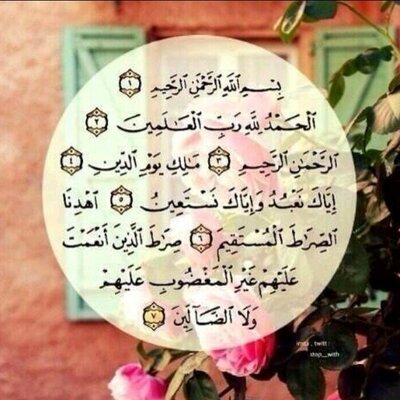 بِسْمِ اللَّهِ الرَّحْمَٰنِ الرَّحِيمِ ١
الْحَمْدُ لِلَّهِ رَبِّ الْعَالَمِينَ ٢
الرَّحْمَٰنِ الرَّحِيمِ ٣ مَالِكِ يَوْمِ الدِّينِ ٤
إِيَّاكَ نَعْبُدُ وَإِيَّاكَ نَسْتَعِينُ ٥ اهْدِنَا
الصِّرَاطَ الْمُسْتَقِيمَ ٦ صِرَاطَ الَّذِينَ أَنْعَمْتَ
عَلَيْهِمْ غَيْرِ الْمَغْضُوبِ عَلَيْهِمْ
وَلَا الضَّالِّينَ ٧
insta . twitt :
stop__with